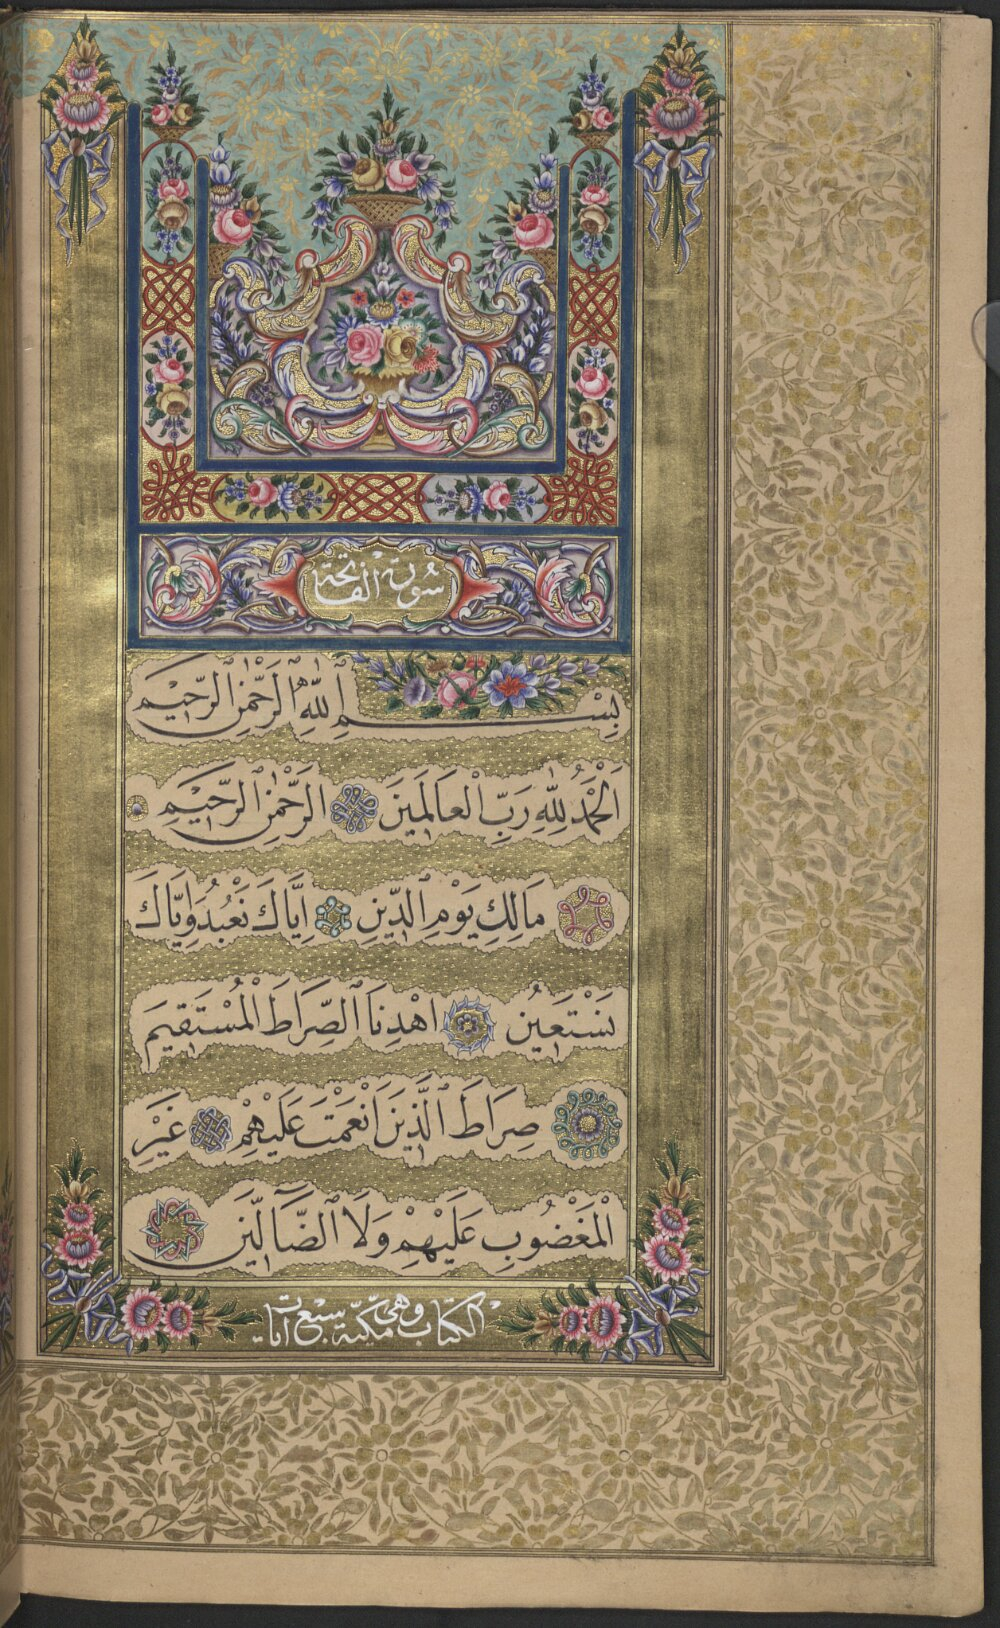 سُورة الفاتحة
بِسْمِ اللّٰهِ الرَّحْمٰنِ الرَّحِيْمِ
اَلْحَمْدُ لِلّٰهِ رَبِّ الْعَالَمِينَ الرَّحْمٰنِ الرَّحِيْمِ
مَالِكِ يَوْمِ الدِّينِ اِيَّاكَ نَعْبُدُ وَاِيَّاكَ
نَسْتَعِينُ اهْدِنَا الصِّرَاطَ الْمُسْتَقِيمَ
صِرَاطَ الَّذِينَ اَنْعَمْتَ عَلَيْهِمْ غَيْرِ
الْمَغْضُوبِ عَلَيْهِمْ وَلَا الضَّآلِّينَ
الكتاب وهي مكيّة سبع آيات